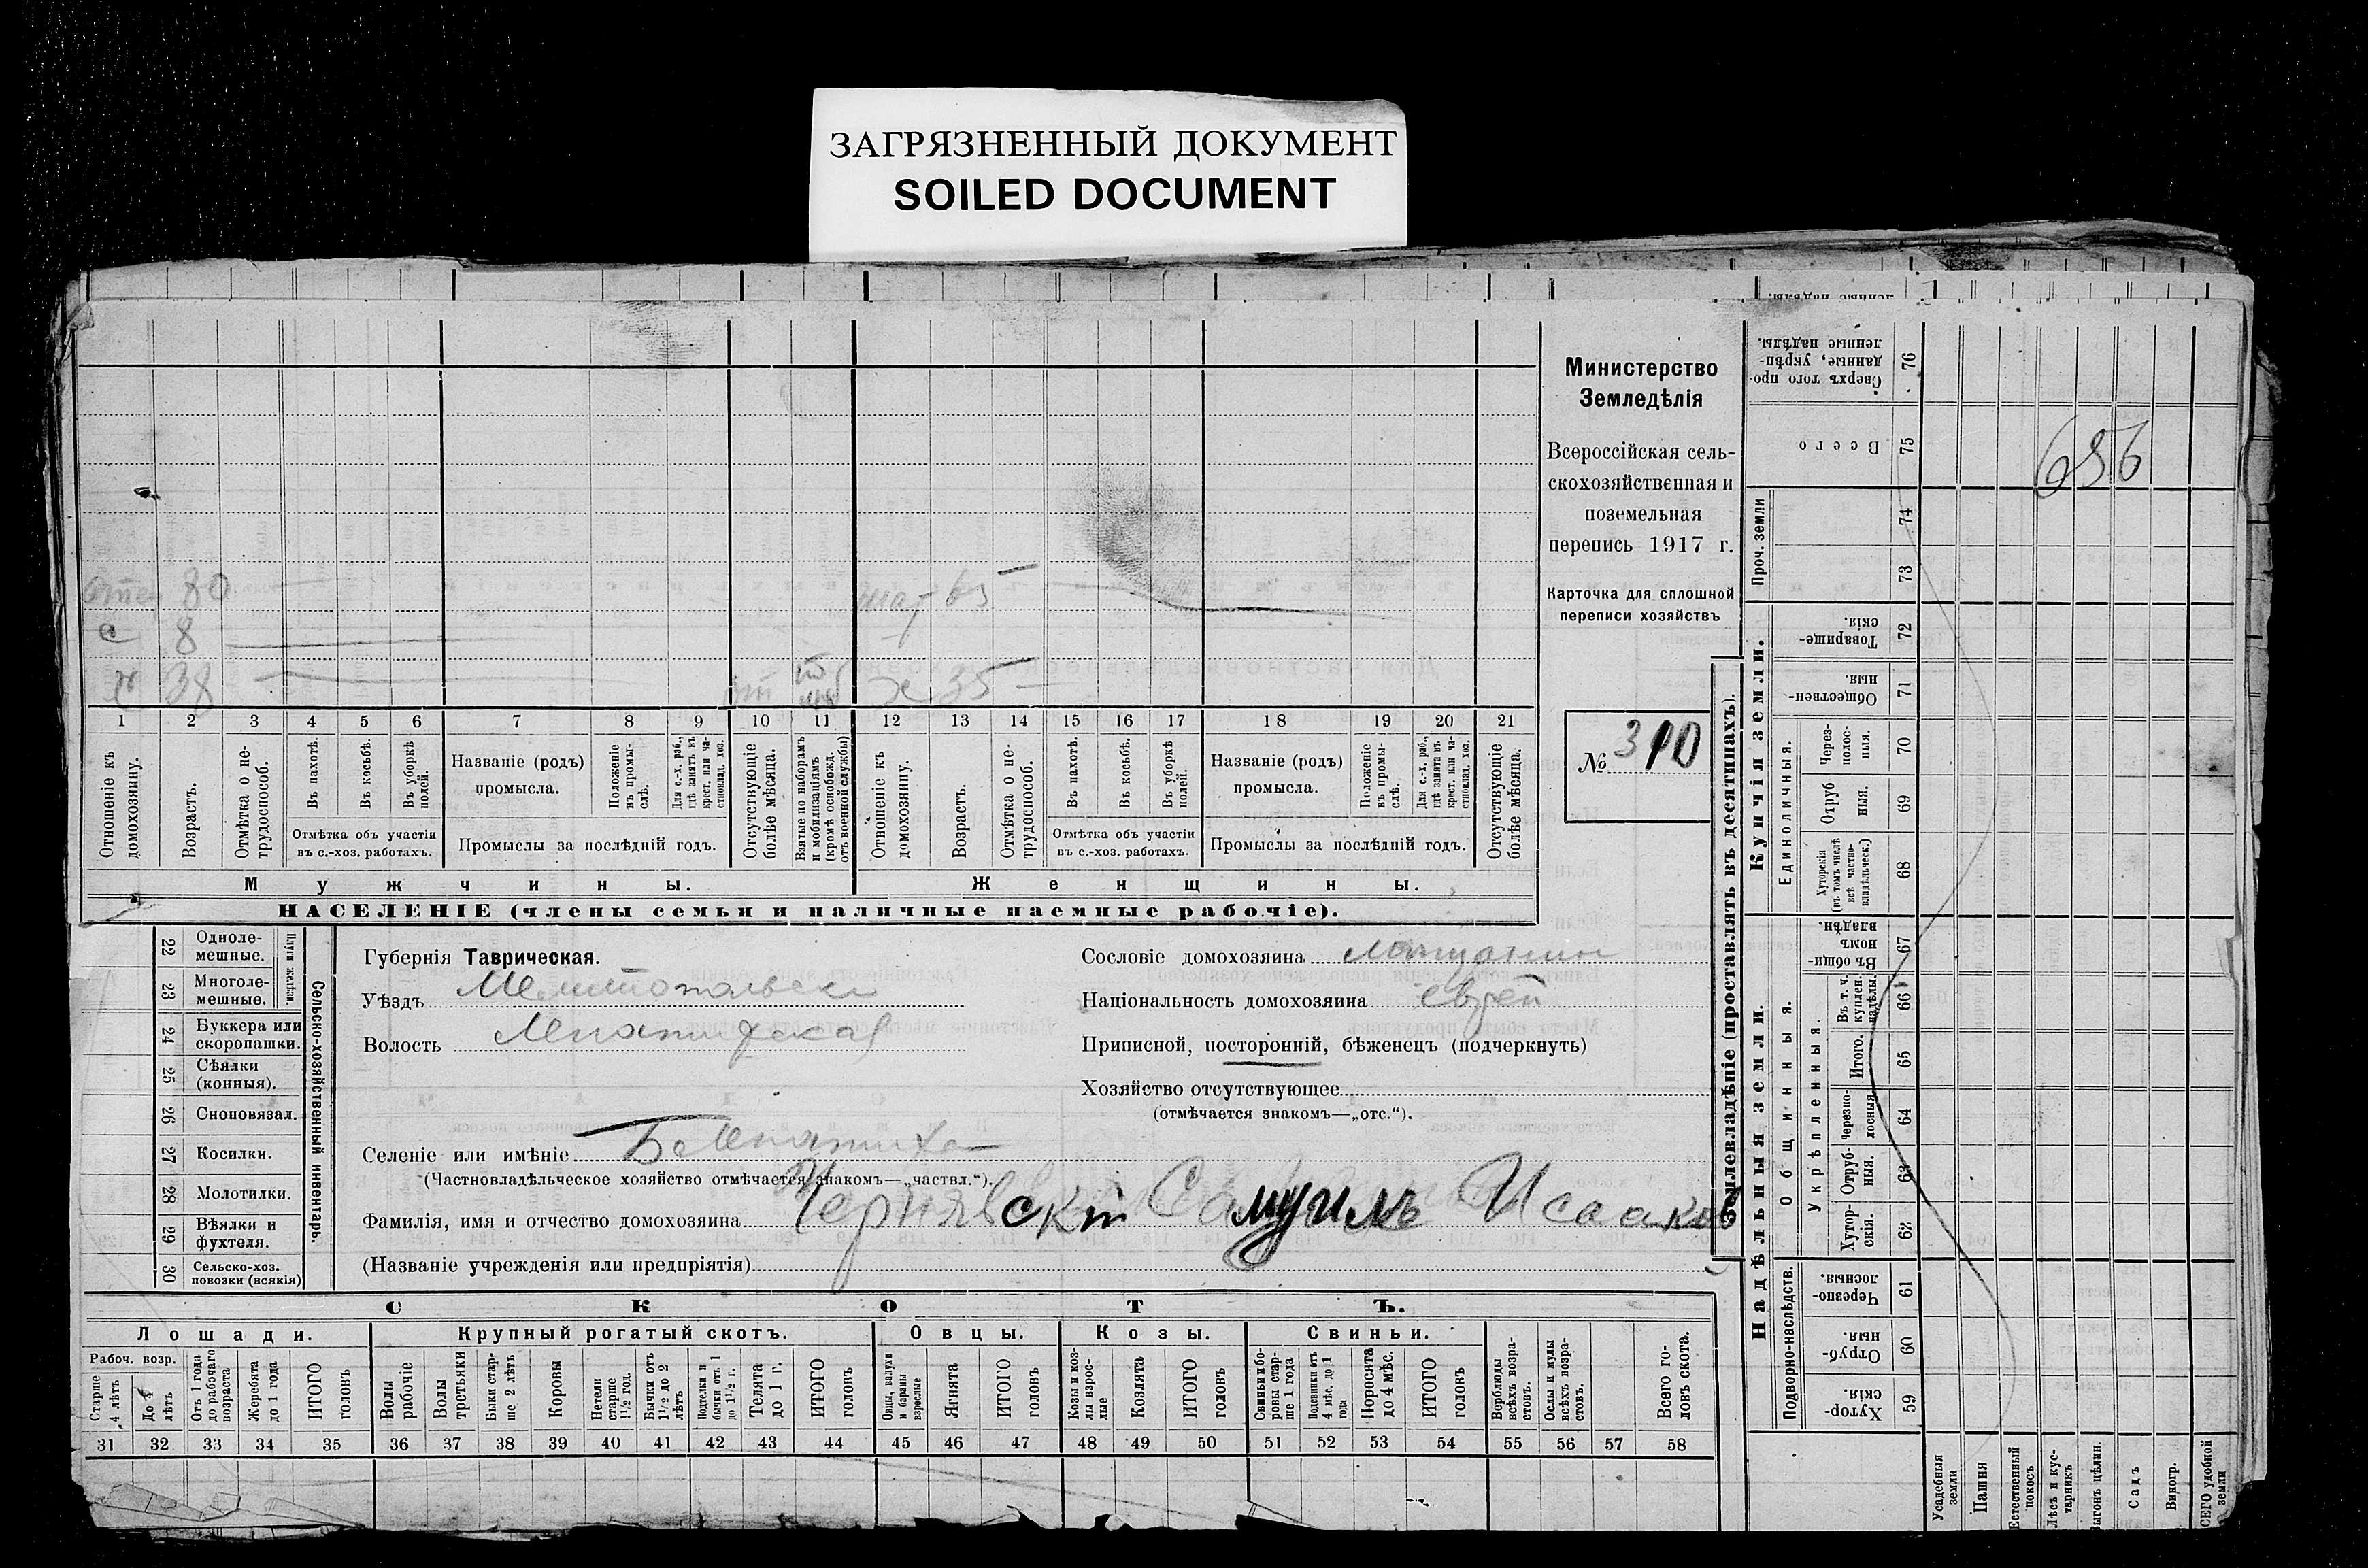 ЗАГРЯЗНЕННЫЙ ДОКУМЕНТ
SOILED DOCUMENT
656
Министерство
Земледѣлія
Всероссійская сель-
скохозяйственная и
поземельная
перепись 1917 г.
Карточка для сплошной
переписи хозяйствъ
№ 310
80
с 8
х 38
мат 65
ж 35
1 2 3 4 5 6 7 8 9 10 11 12 13 14 15 16 17 18 19 20 21
Отношеніе къ домохозяину.
Возрастъ.
Отмѣтка о не-трудоспособ.
Въ пахотѣ.
Въ косьбѣ.
Въ уборкѣ полей.
Отмѣтка объ участіи
въ с.-хоз. работахъ.
Названіе (родъ)
промысла.
Положеніе въ промы-слѣ.
Для с.-х. раб., гдѣ занятъ въ крест. или ча-стновлад. хоз.
Промыслы за послѣдній годъ.
Отсутствующіе болѣе мѣсяца.
Взятые по наборамъ и мобилизаціямъ (кромѣ освобожд. отъ военной службы)
Отношеніе къ домохозяину.
Возрастъ.
Отмѣтка о не-трудоспособ.
Въ пахотѣ.
Въ косьбѣ.
Въ уборкѣ полей.
Отмѣтка объ участіи
въ с.-хоз. работахъ.
Названіе (родъ)
промысла.
Положеніе въ промы-слѣ.
Для с.-х. раб., гдѣ занята въ крест. или ча-стновлад. хоз.
Промыслы за послѣдній годъ.
Отсутствующіе болѣе мѣсяца.
Мужчины.
Женщины.
НАСЕЛЕНІЕ (члены семьи и наличные наемные рабочіе).
22 Одноле-мешные.
23 Многоле-мешные.
Плуги желѣзн.
24 Буккера или скоропашки.
25 Сѣялки (конныя).
26 Сноповязал.
27 Косилки.
28 Молотилки.
29 Вѣялки и фухтеля.
30 Сельско-хоз. повозки (всякія)
Сельско-хозяйственный инвентарь.
Губернія Таврическая.
Уѣздъ Мелитопольски
Волость
Селеніе или имѣніе
(Частновладѣльческое хозяйство отмѣчается знакомъ—„частвл.“).
Фамилія, имя и отчество домохозяина Чернявскій Самуилъ Исааков
(Названіе учрежденія или предпріятія)
Сословіе домохозяина
Національность домохозяина еврей
Приписной, посторонній, бѣженецъ (подчеркнуть)
Хозяйство отсутствующее
(отмѣчается знакомъ—„отс.“).
СКОТЪ.
Лошади.
Рабоч. возр.
Старше 4 лѣтъ
До 4 лѣтъ
Отъ 1 года до рабочаго возраста
Жеребята до 1 года
ИТОГО головъ
Крупный рогатый скотъ.
Волы рабочіе
Волы третьяки
Быки стар-ше 2 лѣтъ
Коровы
Нетели старше 1½ год.
Бычки отъ 1½ до 2 лѣтъ
Подтелки и бычки отъ 1 до 1½ г.
Телята до 1 г.
ИТОГО головъ
Овцы.
Овцы, валухи и бараны взрослые
Ягнята
ИТОГО головъ
Козы.
Козы и коз-лы взрос-лые
Козлята
ИТОГО головъ
Свиньи.
Свиньи и бо-ровы стар-ше 1 года
Подсвинки отъ 4 мѣс. до 1 года
Поросята до 4 мѣс.
ИТОГО головъ
Верблюды всѣхъ возра-стовъ.
Ослы и мулы всѣхъ возра-стовъ.
Всего го-ловъ скота.
31 32 33 34 35 36 37 38 39 40 41 42 43 44 45 46 47 48 49 50 51 52 53 54 55 56 57 58
Землевладѣніе (проставлять въ десятинахъ).
Сверхъ того про-данные, укрѣп-ленные надѣлы. 76
Всего 75
Проч. земли
74
73
Купчія земли.
Товарище-скія. 72
Обществен-ныя. 71
Единоличныя.
Через-полос-ныя. 70
Отруб ныя. 69
Хуторскія (въ томъ числѣ всѣ частно-владѣльческ.) 68
Надѣльныя земли.
Общинныя.
Въ общин-номъ владѣн. 67
Укрѣпленныя.
Въ т. ч. куплен. надѣлы. 66
Итого. 65
черезпо-лосныя 64
Отруб-ныя. 63
Хутор-скія. 62
Подворно-наслѣдств.
Черезпо-лосныя. 61
Отруб-ныя. 60
Хутор-скія. 59
Усадебныя земли
Пашня
Естественный покосъ
Лѣсъ и кус-тарникъ
Выгонъ цѣлин.
Садъ
Виногр.
ВСЕГО удобной земли